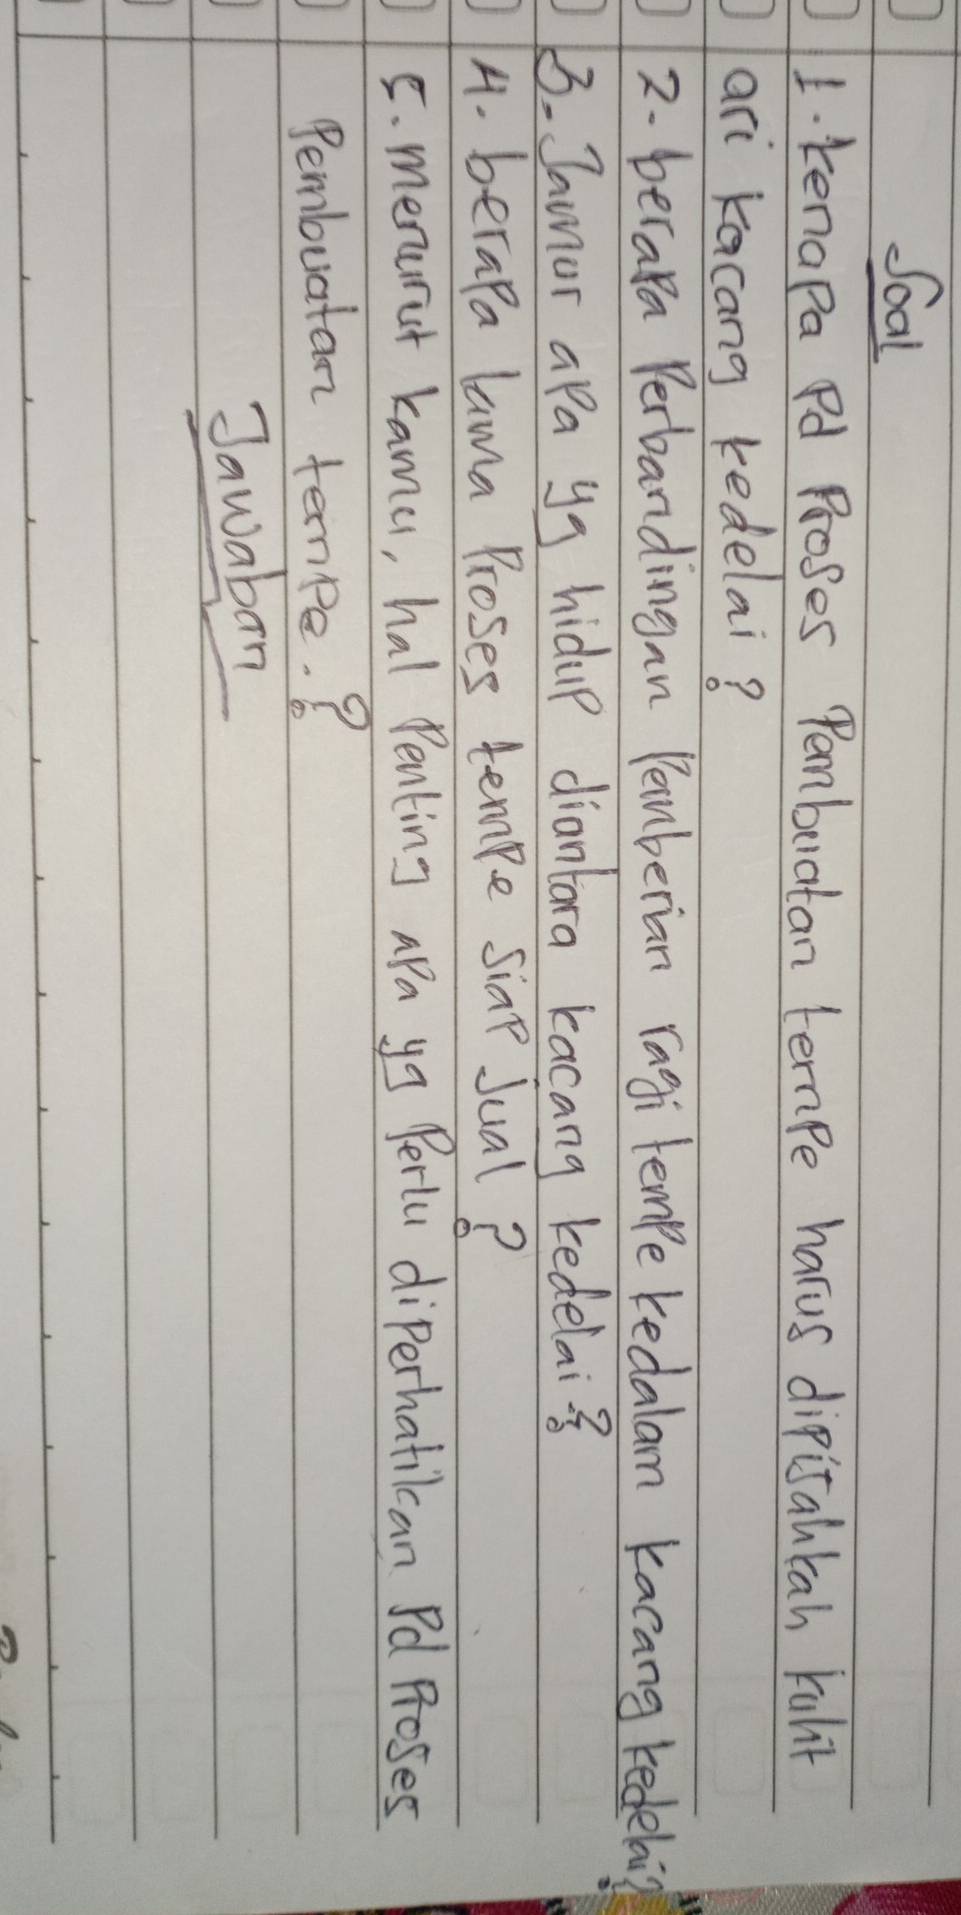 Soal
1. kenapa Pd Proses Pembuatan tempe harus dipisahkah kulit
ari kacang kedelai?
2. berapa Perbandingan Pemberian ragi tempe kedalam kacang kedelai?
3. Jamur apa yg hidup diantara kacang kedelai?
4. berapa lama Proses tempe siap Jual?
5. menurut kamu, hal Penting apa yg Perlu diperhatikan Pd Proses
Pembuatan tempe.?
Jawaban